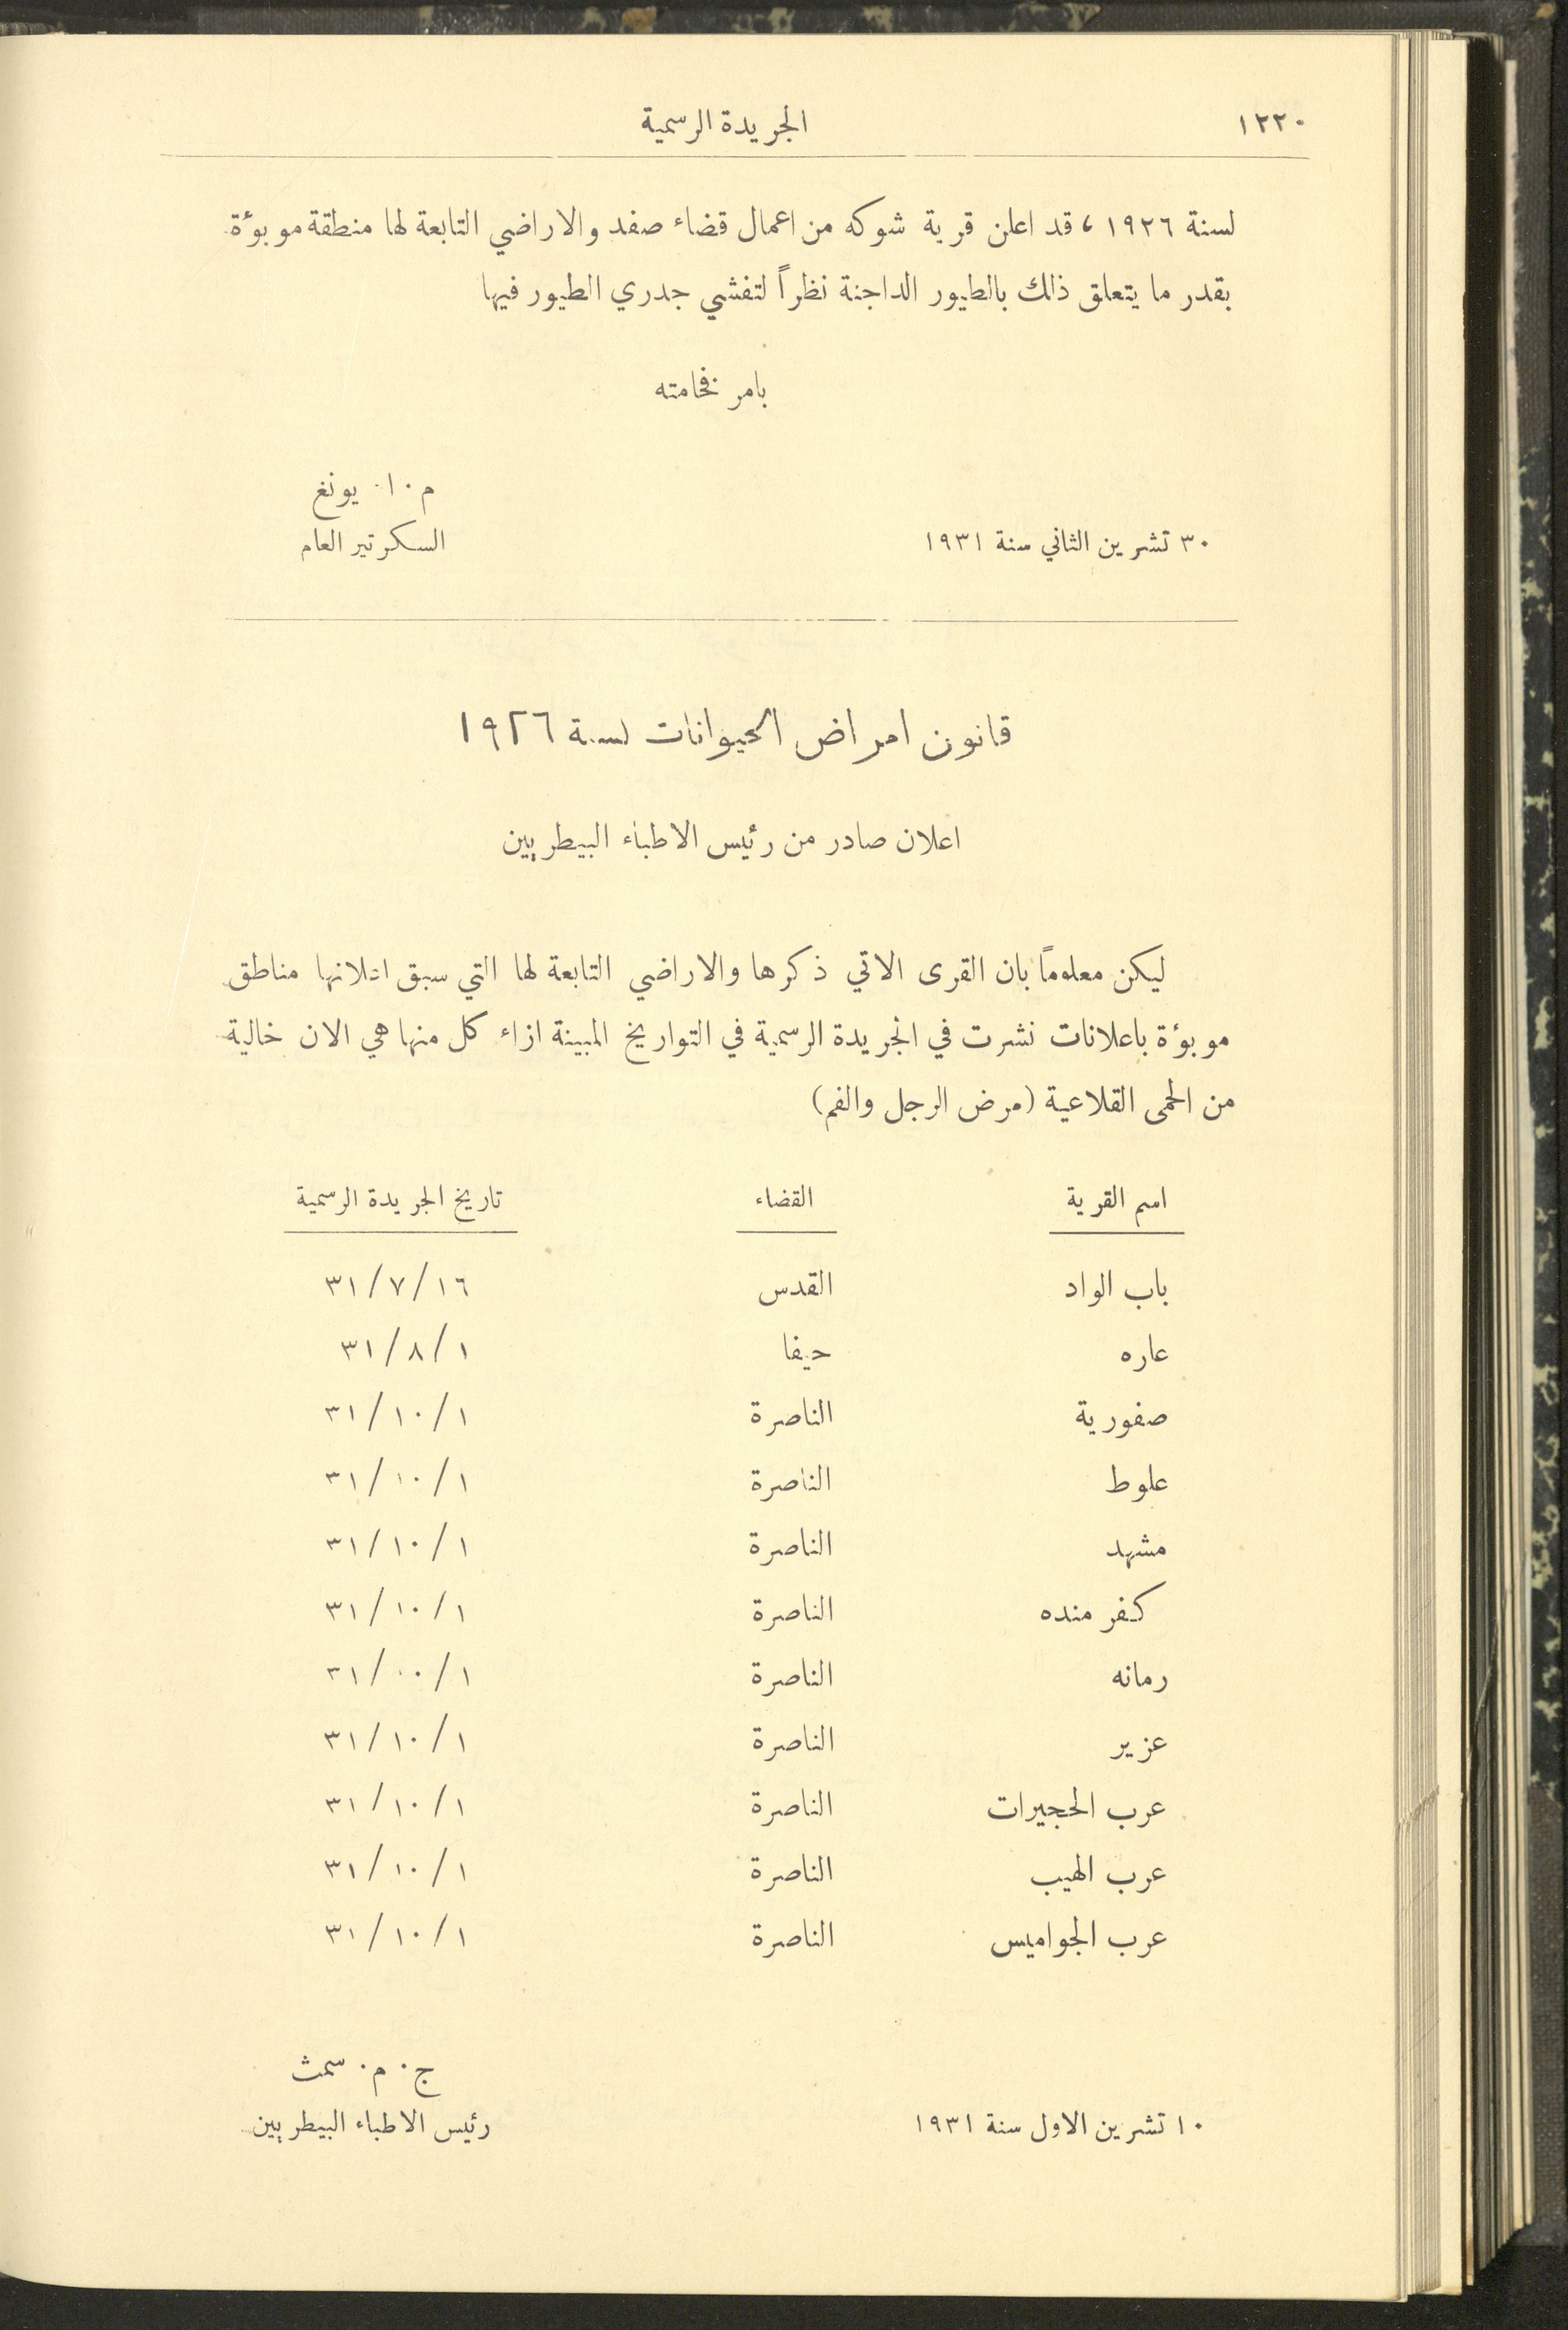 ١٢٢٠
الجريدة الرسمية
لسنة ١٩٢٦ ، قد اعلن قرية شوكه من اعمال قضاء صفد والاراضي التابعة لها منطقة موبوؤة
بقدر ما يتعلق ذلك بالطيور الداجنة نظراً لتفشي جدري الطيور فيها
بامر فخامته
م٠ ا٠ يونغ
٣٠ تشرين الثاني سنة ١٩٣١ السكرتير العام
قانون امراض الحيوانات لسنة ١٩٢٦
اعلان صادر من رئيس الاطباء البيطريين
ليكن معلوماً بان القرى الاتي ذكرها والاراضي التابعة لها التي سبق اعلانها مناطق
موبوؤة باعلانات نشرت في الجريدة الرسمية في التواريخ المبينة ازاء كل منها هي الان خالية
من الحمى القلاعية (مرض الرجل والفم)
اسم القرية القضاء تاريخ الجريدة الرسمية
باب الواد القدس ٣١/٧/١٦
عاره حيفا ٣١/٨/١
صفورية الناصرة ٣١/١٠/١
علوط الناصرة ٣١/١٠/١
مشهد الناصرة ٣١/١٠/١
كفر منده الناصرة ٣١/١٠/١
رمانه الناصرة ٣١/١٠/١
عزير الناصرة ٣١/١٠/١
عرب الحجيرات الناصرة ٣١/١٠/١
عرب الهيب الناصرة ٣١/١٠/١
عرب الجواميس الناصرة ٣١/١٠/١
ج٠ م٠ سمث
١٠ تشرين الاول سنة ١٩٣١ رئيس الاطباء البيطريين